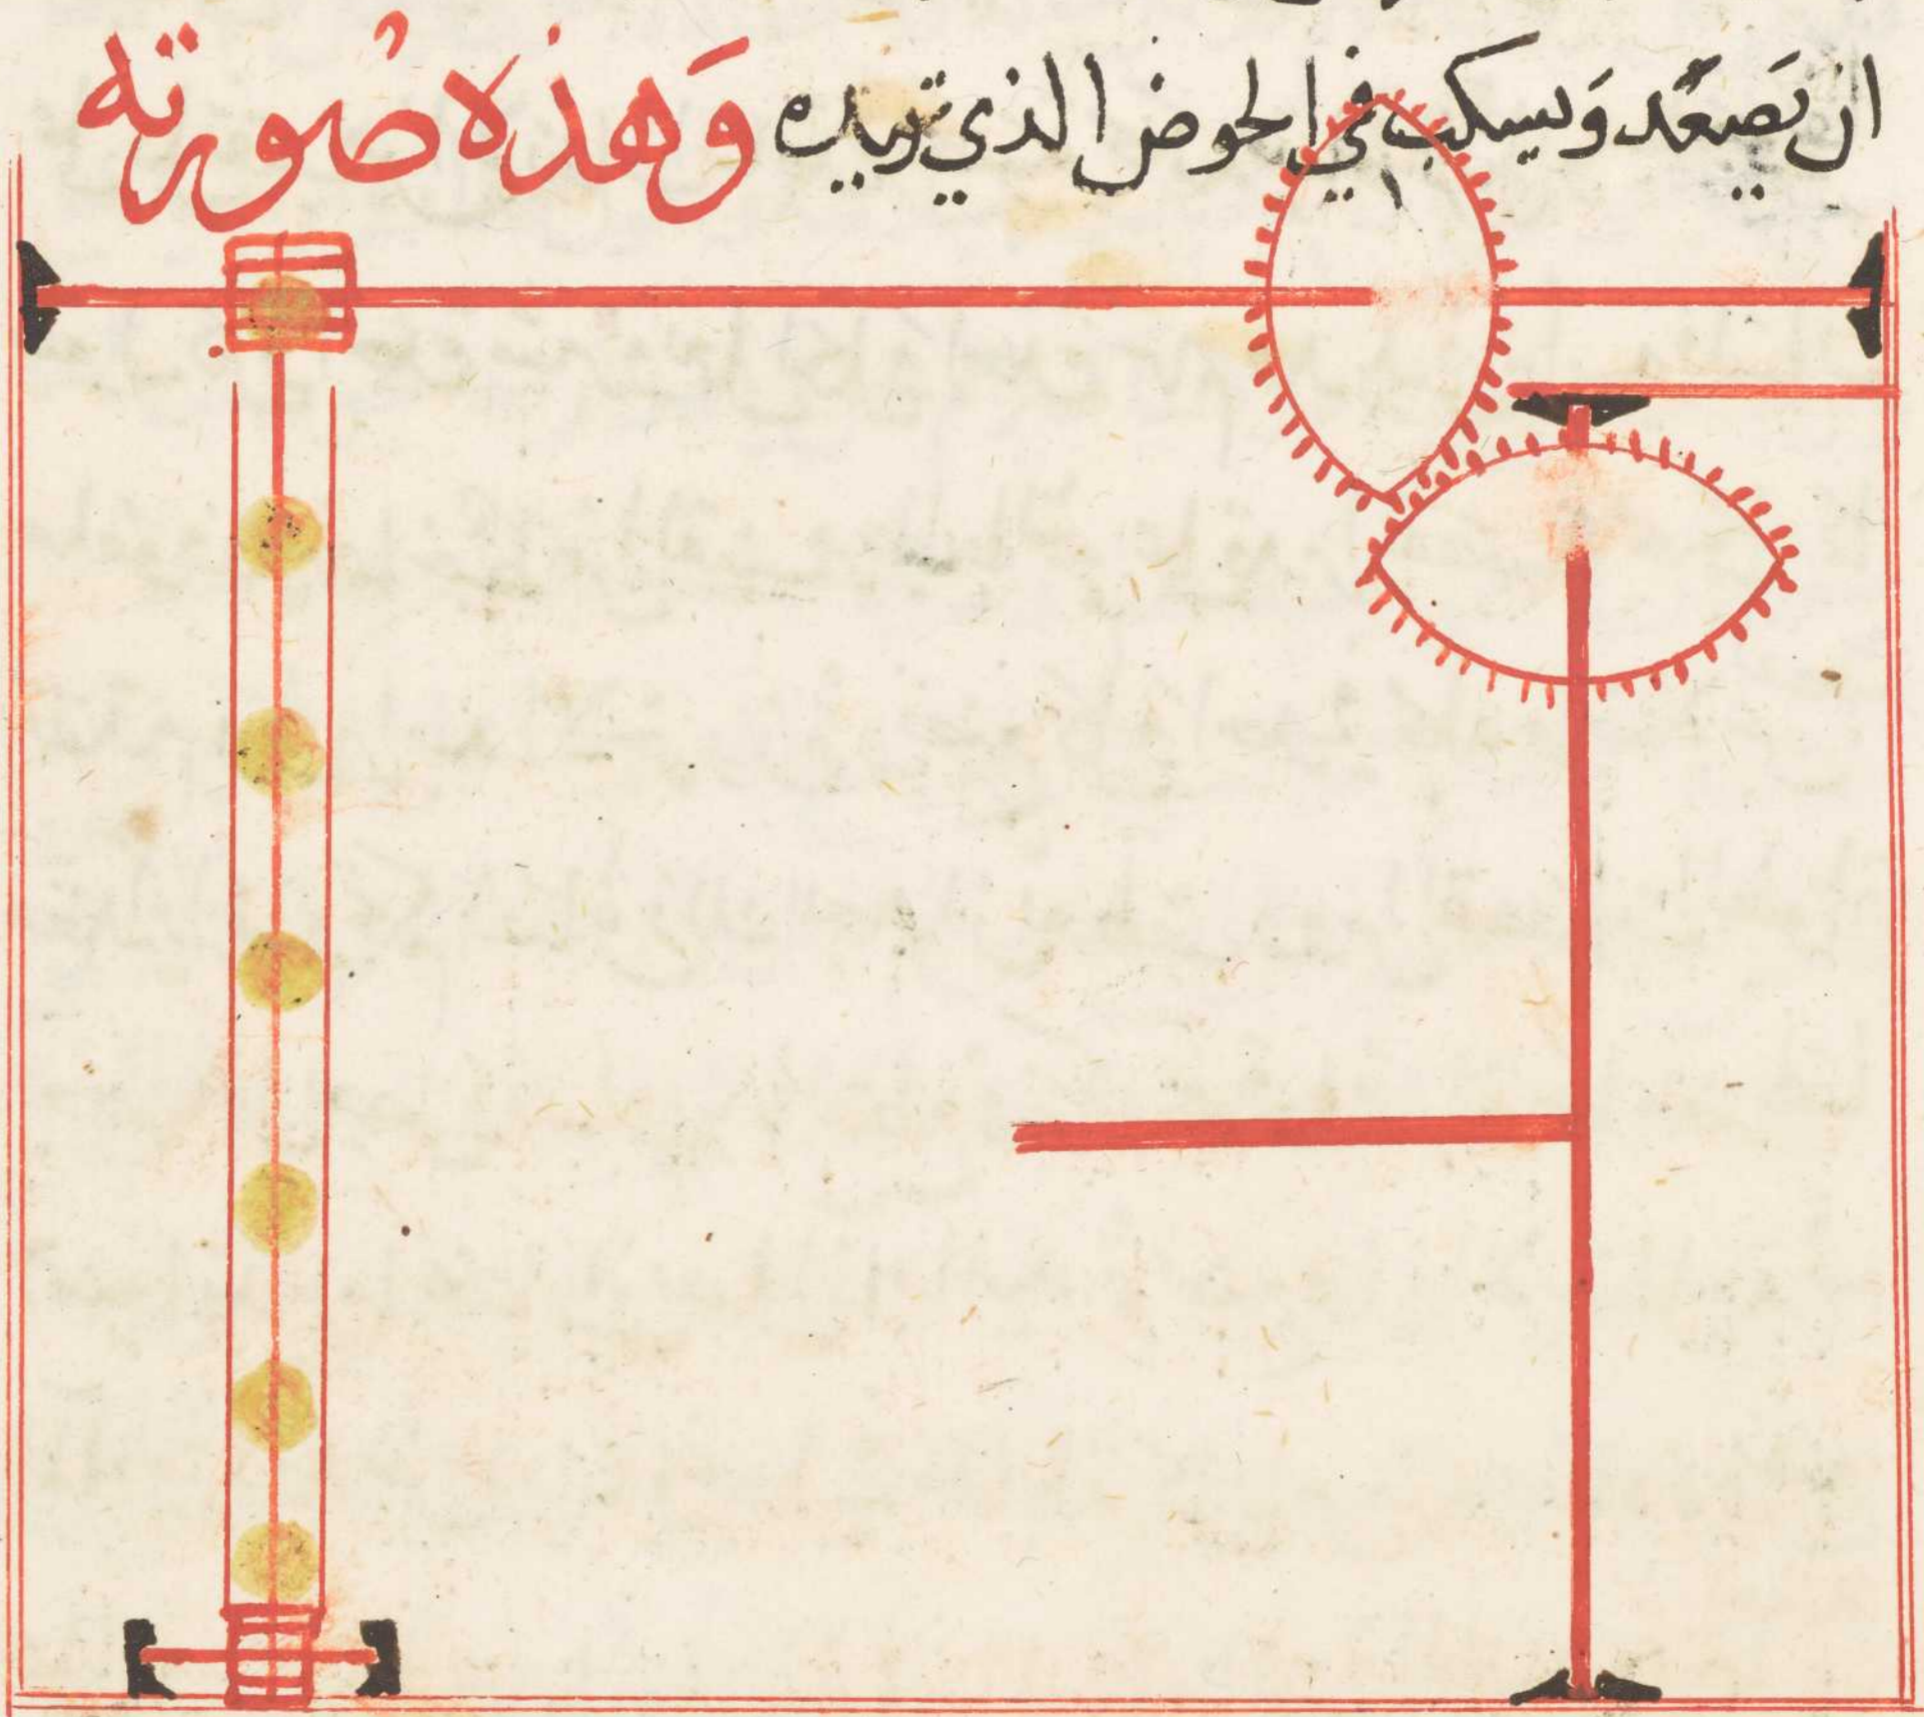 ان يَصعَد وَيسكب في الحوض الذي تريده وَهذه صُورته